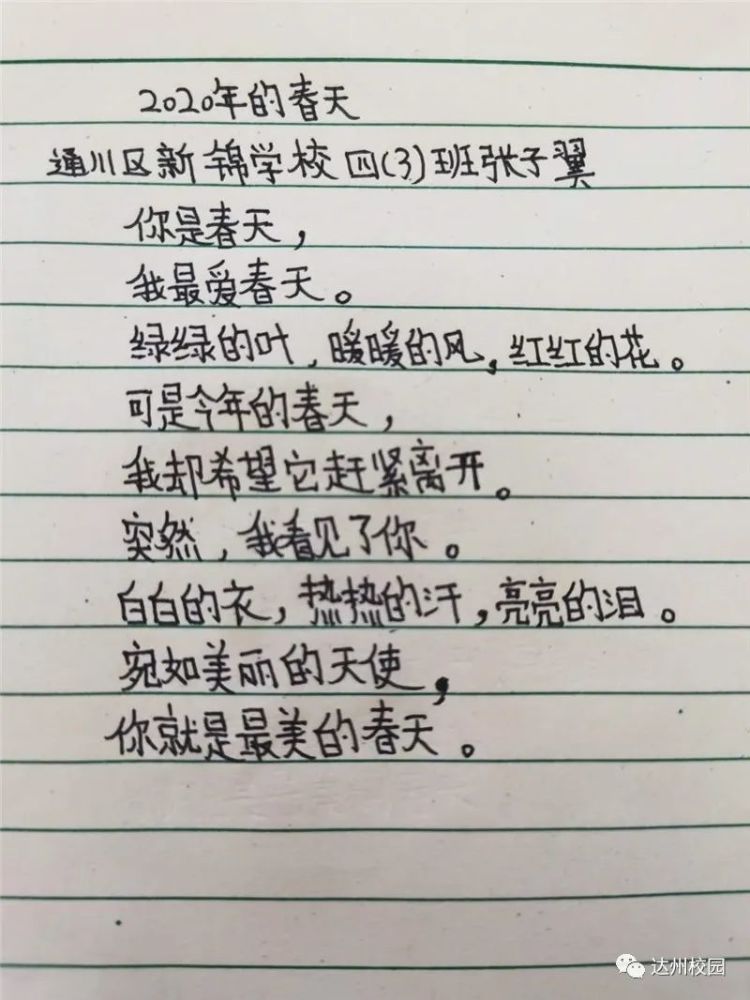 2020年的春天
通川区新锦学校四(3)班张子翼
你是春天，
我最爱春天。
绿绿的叶，暖暖的风，红红的花。
可是今年的春天，
我却希望它赶紧离开。
突然，我看见了你。
白白的衣，热热的汗，亮亮的泪。
宛如美丽的天使，
你就是最美的春天。
达州校园